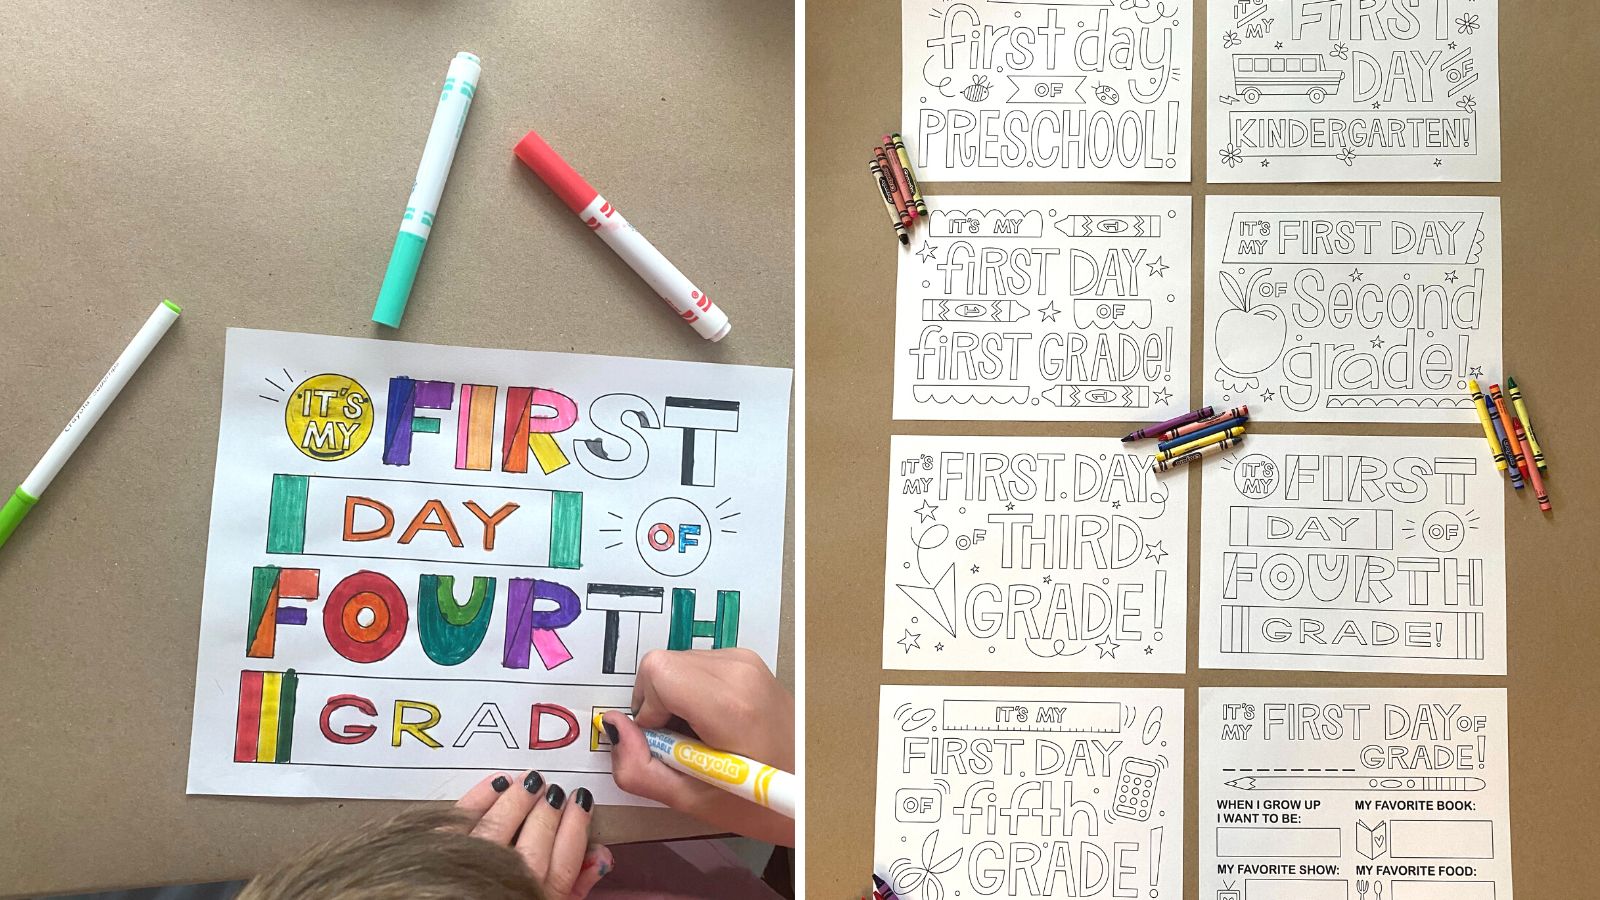 IT'S
MY
FIRST
DAY
OF
FOURTH
GRADE
Crayola
first day
OF
PRESCHOOL!
IT'S
MY
FIRST
DAY
OF
KINDERGARTEN!
IT'S MY
1
FIRST DAY
1
OF
FIRST GRADE!
1
IT'S
MY
FIRST DAY
OF
Second
grade!
IT'S
MY
FIRST DAY
OF
THIRD
GRADE!
IT'S
MY
FIRST
DAY
OF
FOURTH
GRADE!
IT'S MY
FIRST DAY
OF
fifth
GRADE!
IT'S
MY
FIRST DAY OF
GRADE!
WHEN I GROW UP
I WANT TO BE:
MY FAVORITE BOOK:
MY FAVORITE SHOW:
MY FAVORITE FOOD: